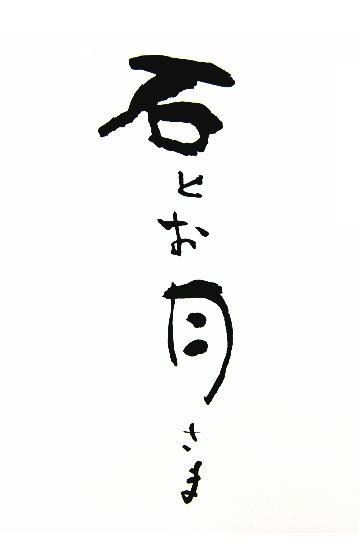 石とお月さま